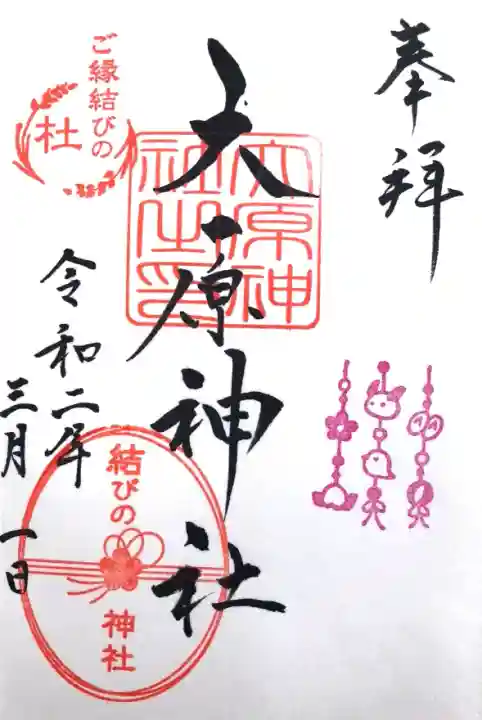 奉拝
大原神社
大原神社之印
ご縁結びの
杜
令和二年
三月一日
結びの
神社